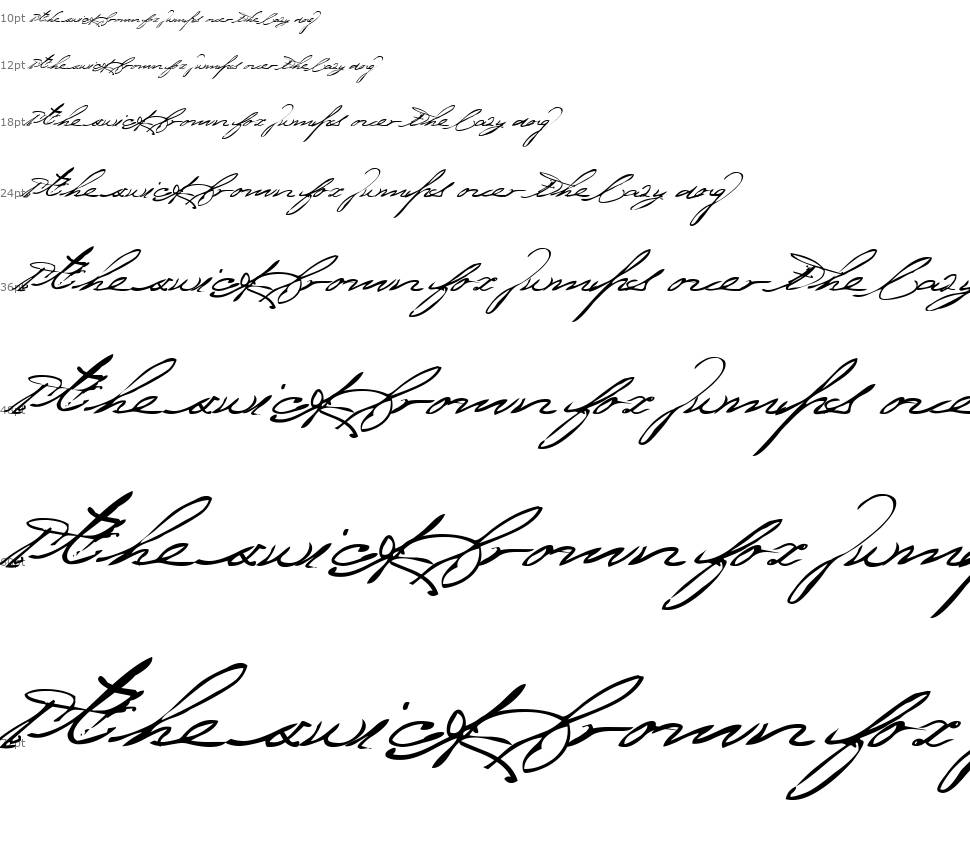 10pt the quick brown fox jumps over the lazy dog
12pt the quick brown fox jumps over the lazy dog
18pt the quick brown fox jumps over the lazy dog
24pt the quick brown fox jumps over the lazy dog
36pt the quick brown fox jumps over the lazy
48pt the quick brown fox jumps ove
60pt the quick brown fox jump
72pt the quick brown fox